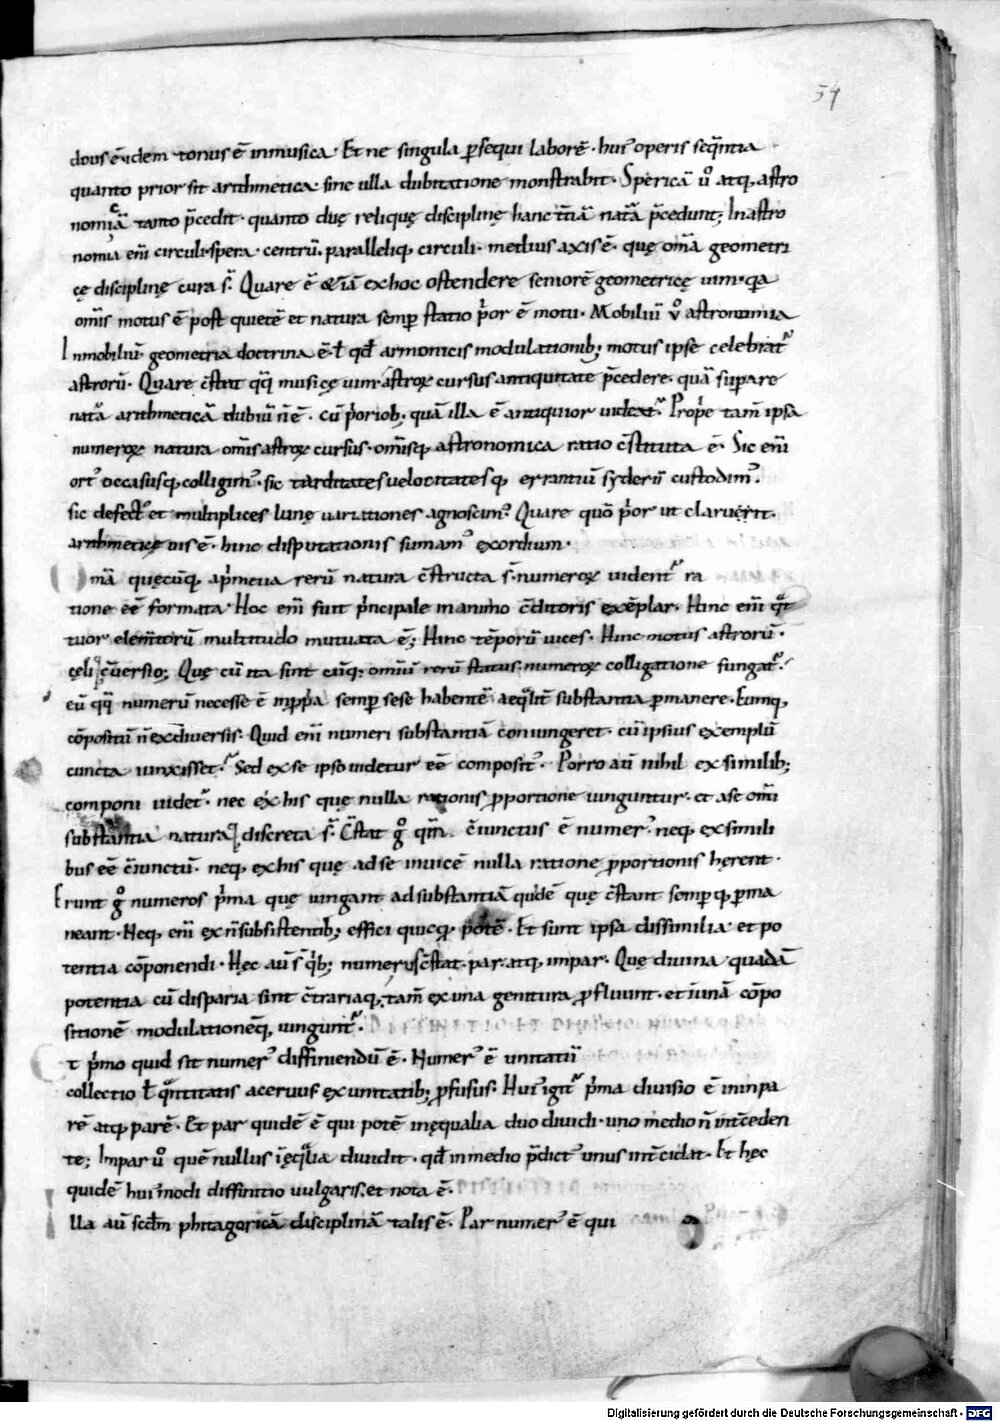 54
dous ē· idem tonus ē in musica· Et ne singula p̱sequi laborē· hui᷒ operis seq̄ntia
quanto prior sit arithmetica· sine ulla dubitatione monstrabit· Spericā ū̊ atq; astro
nomicā tanto p̄cedit· quanto duę reliquę disciplinę hanc t̄ciā nat̄a p̄cedunt; In astro
nomia eni̅ circuli· spera· centrū· paralleliq; circuli· medius axis ē· quę om̄a geometri
cę disciplinę cura s̄· Quare ē &iā ex hoc ostendere seniorē geometricę uim· q̱a
om̄is motus ē post quietē et natura semp̱ statio p̓or ē motu· Mobiliū ū̊ astronomia
Inmobiliū geometria doctrina ē· ł qđ armonicis modulationib; motus ipse celebrat᷒
astrorū· Quare c̄stat qq̓ musicę uim astroꝝ cursus antiquitate p̄cedere· quā sup̱are
nat̄a arithmeticā dubiū n̄ ē· cū p̓orib; quā illa ē antiquior uideat᷒· Prop̓e tam̄ ipsa
numeroꝝ natura om̄is astroꝝ cursus· om̄isq; astronomica ratio c̄stituta ē· Sic eni̅
ort᷒ occasusq; colligim᷒· sic tarditates uelocitatesq; errantiū syderū custodim᷒·
sic defect᷒ et multiplices lunę uariationes agnoscim᷒· Quare quō p̓or ut claruerit·
arithmeticę uis ē· hinc disputationis sumam᷒ exordium·
mā quęcūq; a p̓meua rerū natura c̄structa s̄· numeroꝝ uident᷒ ra
tione eē formata· Hoc eni̅ fuit p̓ncipale in animo c̄ditoris exēplar· Hinc eni̅ q̄t
tuor elem̄torū multitudo mutuata ē; Hinc tēporū uices· Hinc motus astrorū·
cęliq; c̄uersio; Quę cū ita sint cūq; omniū rerū status· numeroꝝ colligatione fungat᷒·
eū qq̓ numerū necesse ē inp̱p̓a semp̱ sese habentē aeq̓lit̄ substantia p̱manere· Eumq;
cōpositū n̄ ex diuersis· Quid eni̅ numeri substantiā coniungeret· cū ipsius exemplū
cuncta iunxisset· Sed ex se ipso uidetur eē composit᷒· Porro aū nihil ex similib;
componi uidet᷒· nec ex his quę nulla rationis p̱portione iunguntur· et a se om̄i
substantia naturaq; discreta s̄· C̄stat g̊ qm̄ c̄iunctus ē numer᷒· neq; ex simili
bus eē c̄iunctū· neq; ex his quę ad se inuicē nulla ratione p̱portionis hęrent·
Erunt g̊ numeros p̓ma quę iungant ad substantiā quidē quę c̄stant semp̱q; p̱ma
neant· Neq; eni̅ ex n̄ subsistentib; effici quicq̱ potē· Et sunt ipsa dissimilia· et po
tentia cōponendi· Hęc aū s̄ q̓b; numerus c̄stat· par· atq; impar· Quę diuina quadā
potentia cū disparia sint c̄trariaq; tam̄ ex una genitura p̱fluunt· et in unā cōpo
sitionē modulationēq; iungunt᷒·
t p̓mo quid sit numer᷒ diffiniendū ē· Numer᷒ ē unitatū
collectio ł q̄ntitatis aceruus ex unitatib; p̱fusus· Hui᷒ igit᷒ p̓ma diuisio ē in inpa
rē atq; parē· Et par quidē ē qui potē inęqualia duo diuidi· uno medio n̄ int̄ceden
te; Impar ū̊ quē nullus in ęq̓lia diuidit· qđ in medio p̄dict᷒ unus int̄cidat· Et hęc
quidē hui᷒modi diffinitio uulgaris· et nota ē·
lla aū scđm phitagoricā disciplinā talis ē· Par numer᷒ ē qui
Digitalisierung gefördert durch die Deutsche Forschungsgemeinschaft - DFG